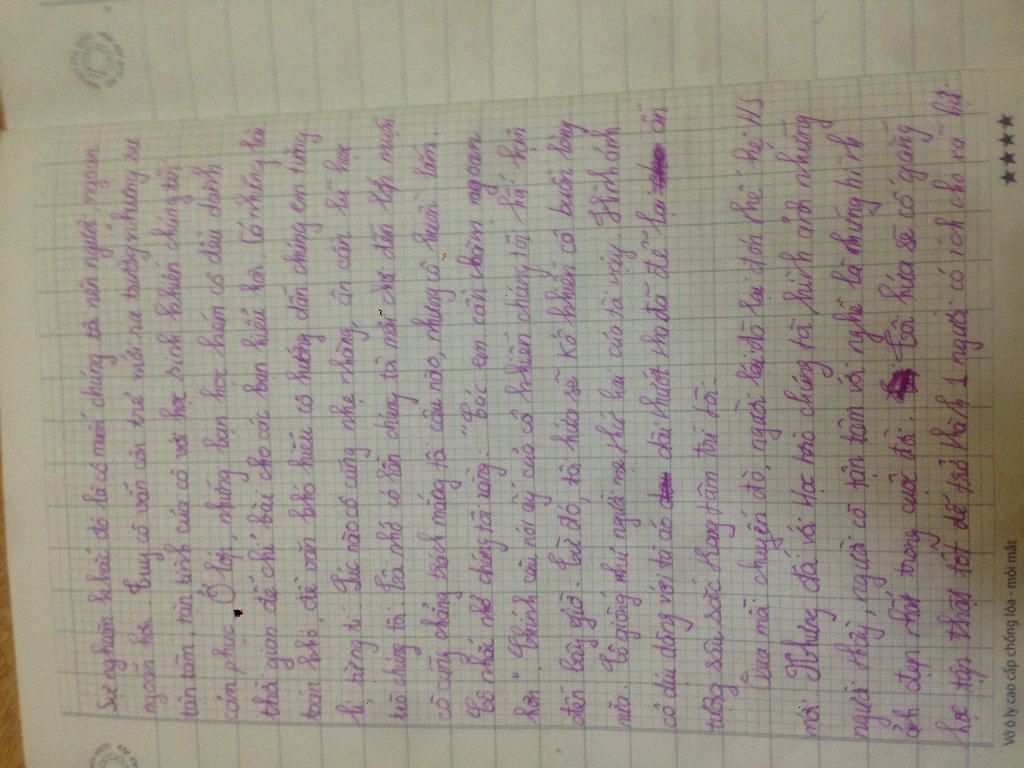 Sự nghiêm khắc đó là cô muốn chúng tô nên người, ngoan
ngoãn hơn. Tuy cô vẫn còn trẻ mới ra trường nhưng sự
tận tâm, tận tình của cô với học sinh khiến chúng tôi
cảm phục. Ở lớp, những bạn học kém cô đều dành
thời gian để chỉ bài cho các bạn hiểu hơn. Có những bài
toán khó, đề văn khó hiểu cô hướng dẫn chúng em từng
li từng tí. Lúc nào cô cũng nhẹ nhàng, ân cần với học
trò chúng tô. Có nhớ có lần chúng tô mãi chơi đến lớp muộn
cô cũng chẳng trách mắng tô câu nào, nhưng cô buồn lắm.
Cô nhắc nhở chúng tôi rằng: "Các em cần chăm ngoan
hơn". Chính câu nói ấy của cô khiến chúng tôi hối hận
đến bây giờ. Sau đó, tô hứa sẽ kô khiến cô buồn lòng
nữa. Cô giống như người mẹ thứ hai của tô vậy. Hình ảnh
cô dịu dàng với tà áo dài thướt tha đã để lại ấn
tượng sâu sắc trong tâm trí tôi.
Qua mỗi chuyến đò, người lái đò lại đón thế hệ HS
mới. Nhưng đối với học trò chúng tô hình ảnh những
người thầy, người cô tận tâm với nghề là những hình
ảnh đẹp nhất trong cuộc đời. Tôi hứa sẽ cố gắng
học tập thật tốt để trở thành 1 người có ích cho xã hội.
Vở ô ly cao cấp chống lóa - mỏi mắt
★★★★